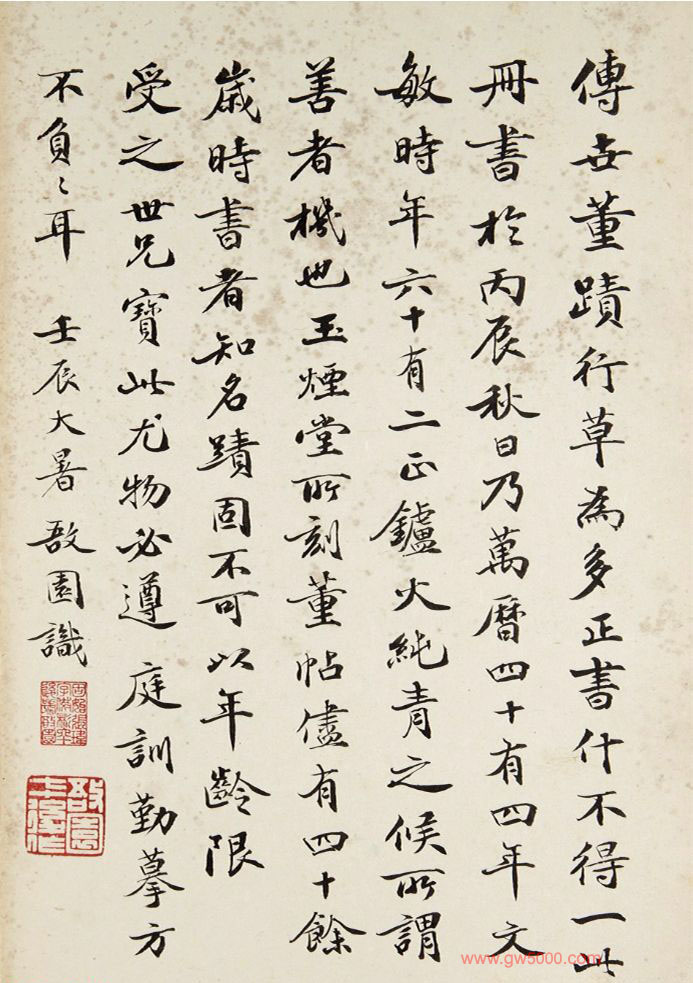 傳世董蹟行草為多正書什不得一此
冊書於丙辰秋日乃萬曆四十有四年文
敏時年六十有二正鑪火純青之候所謂
善者機也玉煙堂所刻董帖儘有四十餘
歲時書者知名蹟固不可以年齡限
受之世兄寶此尤物必遵 庭訓勤摹方
不負〻耳 壬辰大暑敔園識
www.gw5000.com